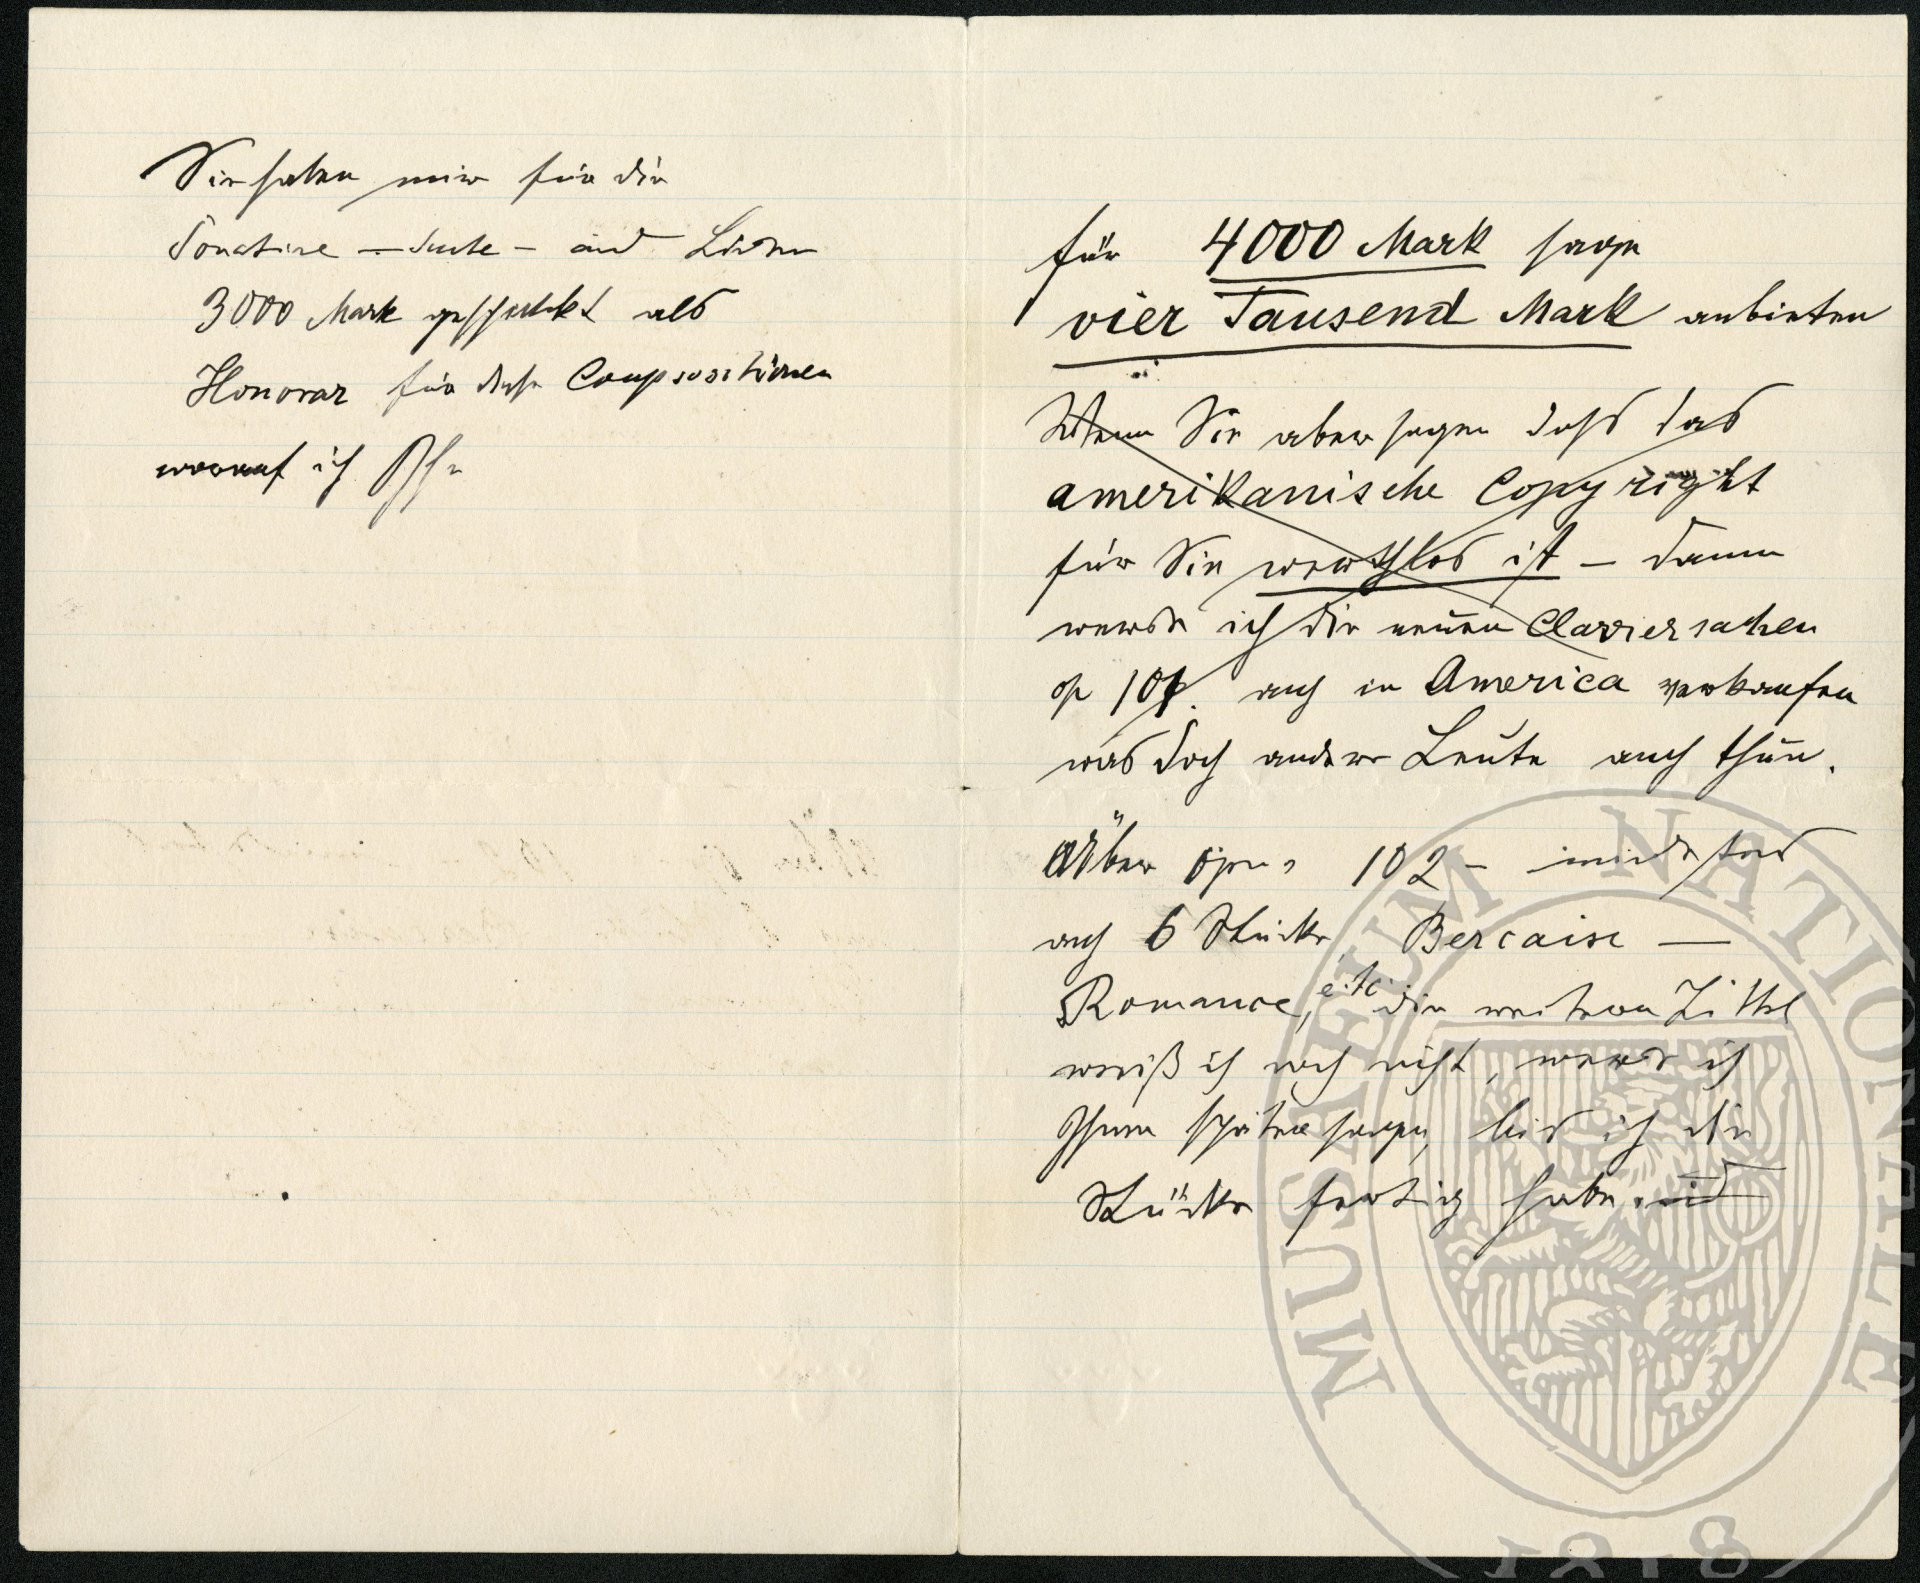 Sie haben mir für die
Sonatine – Suite – und Lieder
3000 Mark geschickt als
Honorar für diese Compositionen
worauf ich Ihn
für 4000 Mark sage
vier Tausend Mark anbieten
Wenn Sie aber sagen dass das
amerikanische Copyright
für Sie werthlos ist – dann
werde ich die neuen Claviersachen
op 101. auch in America verkaufen
was doch andere Leute auch thun.
Über Opus 102 –
auch 6 Stücke, Bercaise —
Romance, etc. die weitern Tittel
weiß ich noch nicht, werde ich
Ihnen später sagen, bis ich die
Stücke fertig habe und
MUSAEUM NATIONALE
1818